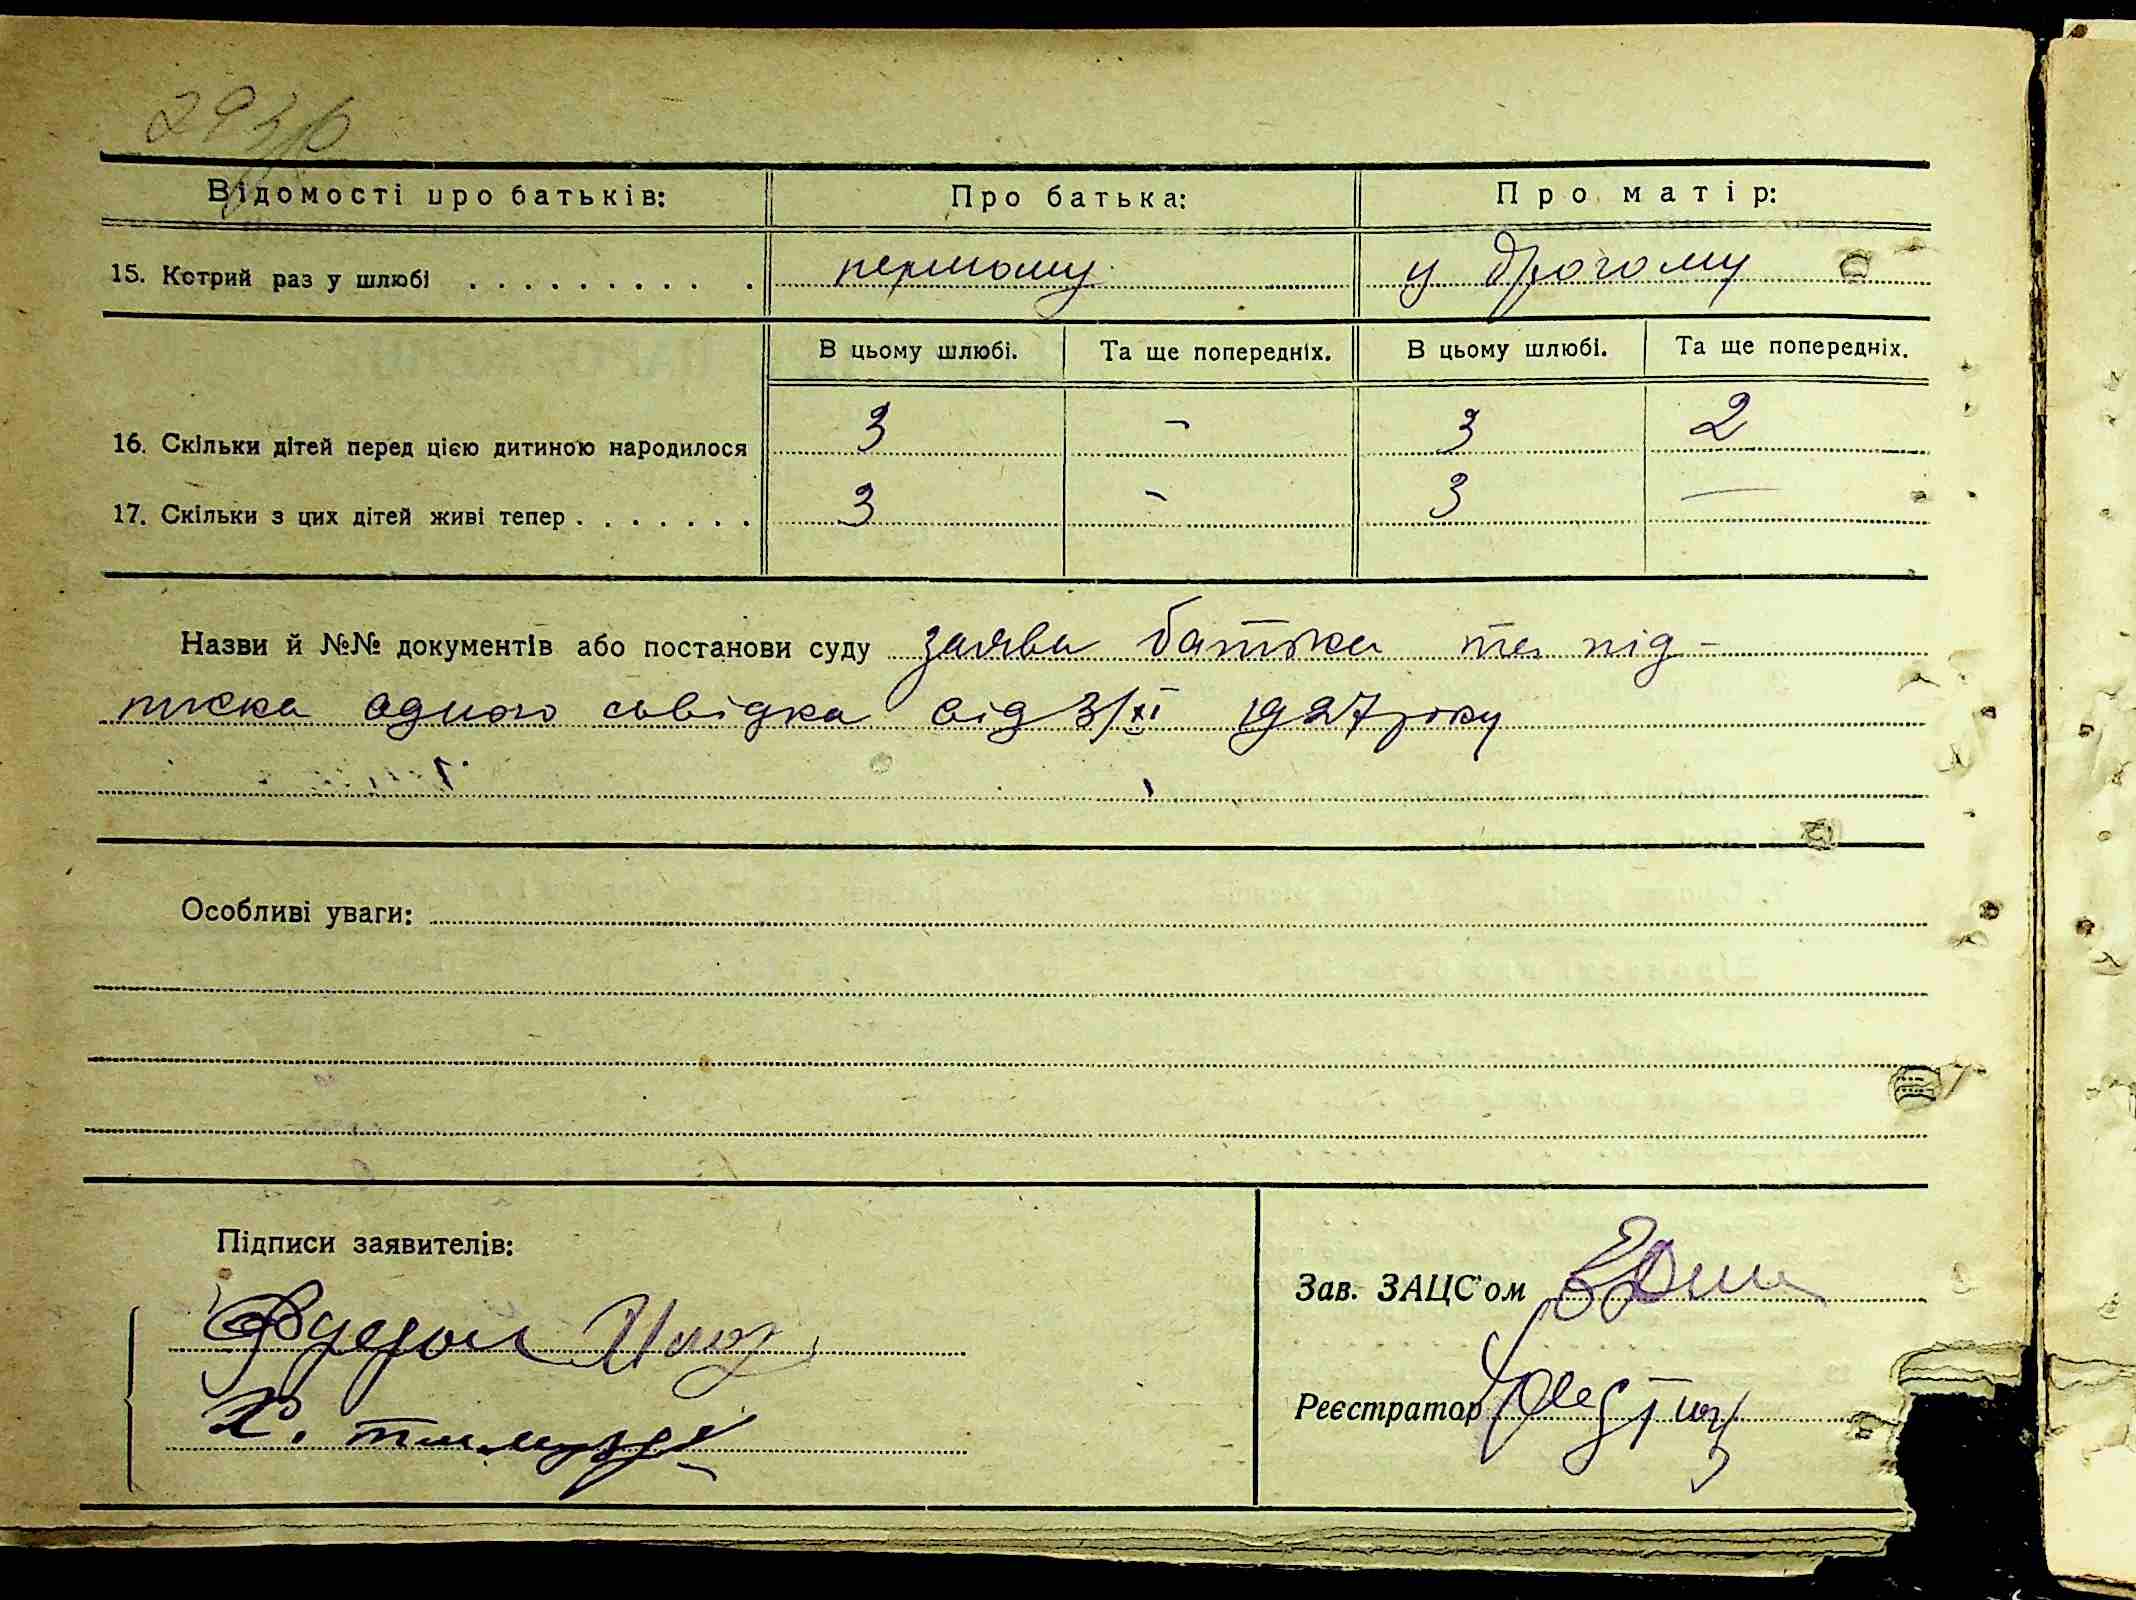 Відомості про батьків: Про батька: Про матір:
15. Котрий раз у шлюбі . . . . . . . . . . першому у другому
В цьому шлюбі. Та ще попередніх. В цьому шлюбі. Та ще попередніх.
16. Скільки дітей перед цією дитиною народилося 3 - 3 2
17. Скільки з цих дітей живі тепер . . . . . . . 3 - 3 —
Назви й №№ документів або постанови суду заява батька та під-
писка одного свідка від 3/XI 1927 року
Особливі уваги:
Підписи заявителів:
Зав. ЗАЦС'ом
Х.
Реєстратор